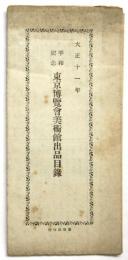 大正十一年
平和記念東京博覽會美術館出品目錄